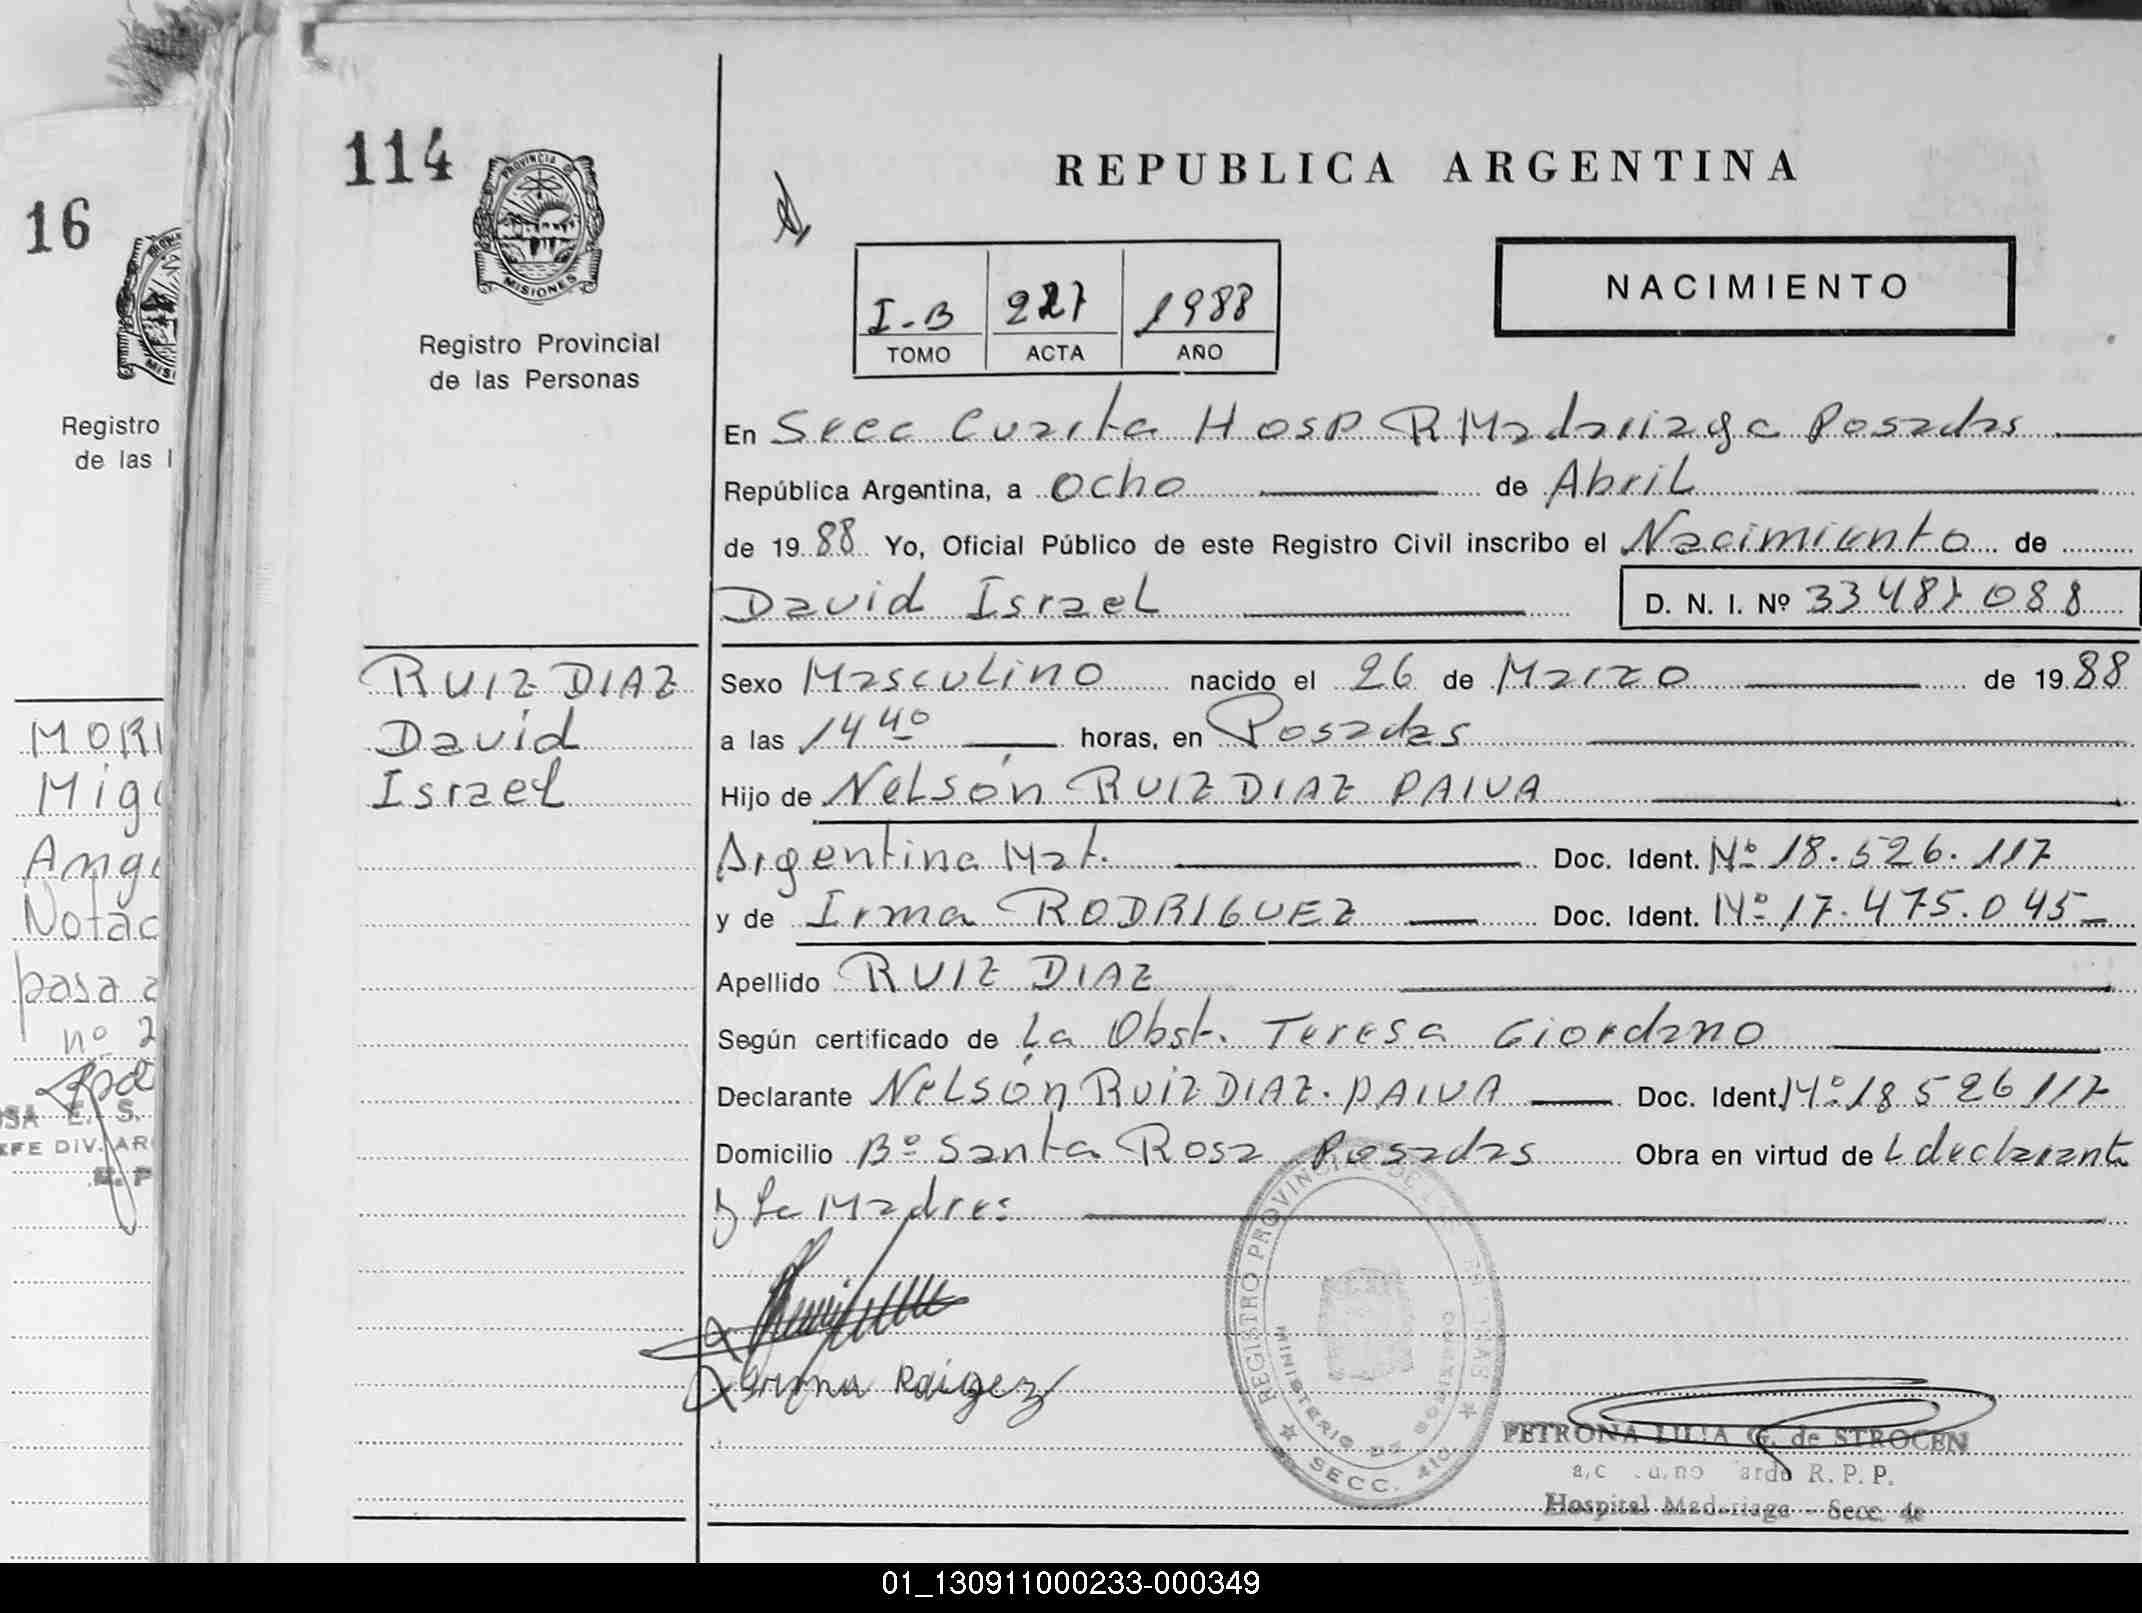 16
Registro
de las
MORI
Mig
Ang
Notac
pasa a
nº 2
OSA E. S.
EFE DIV. AR
114
PROVINCIA DE
MISIONES
Registro Provincial
de las Personas
RUIZ DIAZ
David
Israel
REPUBLICA ARGENTINA
NACIMIENTO
I-B 227 1988
TOMO ACTA AÑO
En Secc Cuarta Hosp R Madariaga Posadas
República Argentina, a Ocho de Abril
de 1988 Yo, Oficial Público de este Registro Civil inscribo el Nacimiento de
David Israel D. N. I. Nº 33487088
Sexo Masculino nacido el 26 de Marzo de 1988
a las 14 40 horas, en Posadas
Hijo de Nelsón RUIZ DIAZ PAIVA
Argentina Mat. Doc. Ident. Nº 18.526.117
y de Irma RODRIGUEZ Doc. Ident. Nº 17.475.045
Apellido RUIZ DIAZ
Según certificado de La Obst. Teresa Giordano
Declarante Nelsón RUIZ DIAZ. PAIVA Doc. Ident. Nº 18 526 117
Domicilio Bº Santa Rosa Posadas Obra en virtud de L declarante
y La Madre:
REGISTRO PROVINCIAL DE LAS PERSONAS
MINISTERIO DE GOBIERNO
SECC. 4ta
PETRONA LILIA G. de STROCEN
R. P. P.
Hospital Madariaga - Secc. 4a
01_130911000233-000349